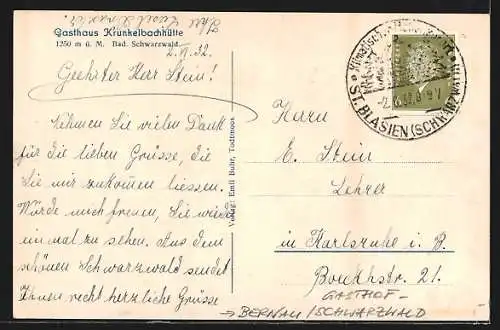 Gasthaus Krunkelbachhütte
1250 m ü. M. Bad. Schwarzwald
Ihre
2. 32.
Geehrter Herr Stein!
Nehmen Sie vielen Dank
für die lieben Grüsse, die
Sie mir zukommen liessen.
Würde mich freuen, Sie wieder
einmal zu sehen. Aus dem
schönen Schwarzwald sendet
Ihnen recht herzliche Grüsse
Verlag: Emil Buhr, Todtmoos
ST. BLASIEN (SCHWARZWALD)
Herrn
E. Stein
Lehrer
in Karlsruhe i. B.
Boeckhstr. 21.
GASTHOF-
→ BERNAU/SCHWARZWALD